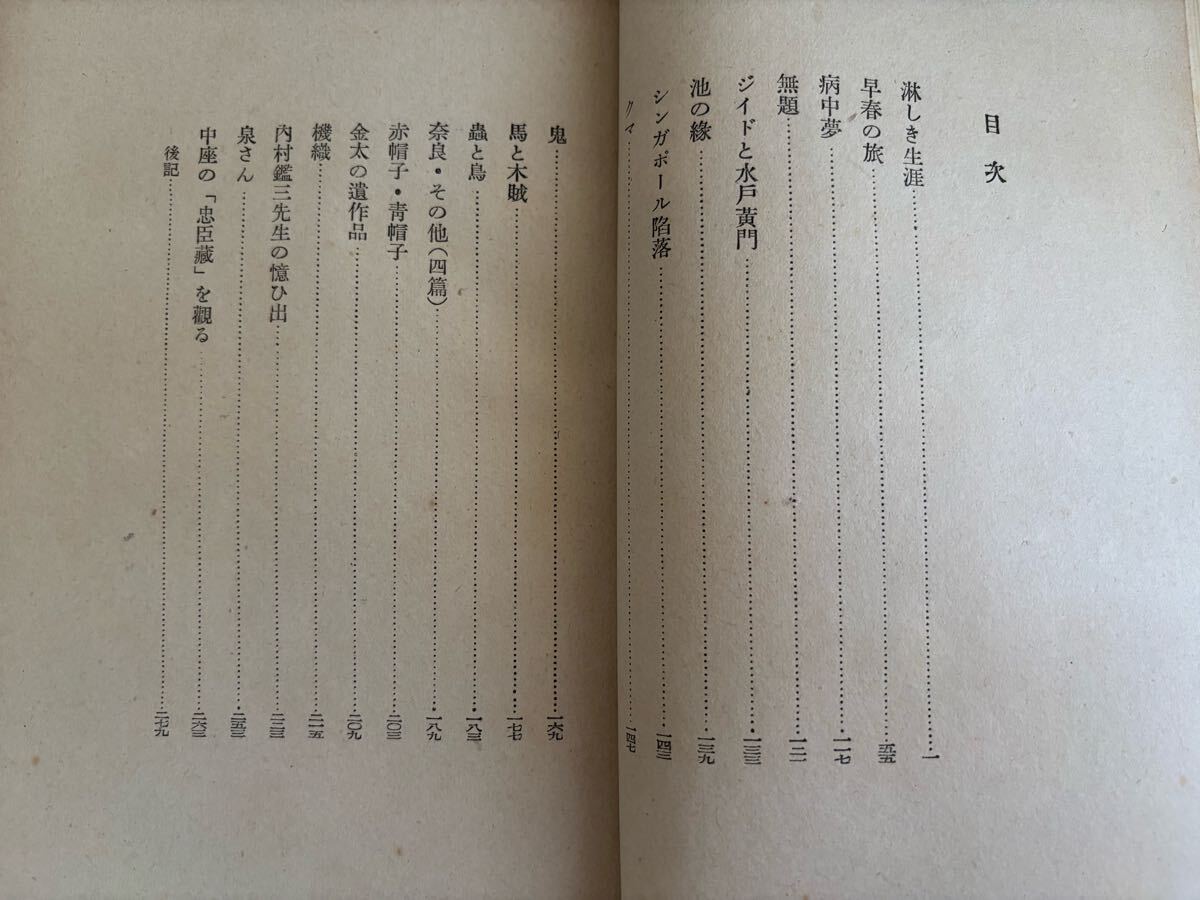 目次
淋しき生涯……一
早春の旅……五五
病中夢……一一七
無題……一二一
ジイドと水戸黃門……一三三
池の緣……一三九
シンガポール陷落……一四三
クマ……一四七
鬼……一六九
馬と木賊……一七七
蟲と鳥……一八三
奈良・その他(四篇)……一八九
赤帽子・靑帽子……二〇三
金太の遺作品……二〇九
機織……二一五
內村鑑三先生の憶ひ出……二三三
泉さん……二五三
中座の「忠臣藏」を觀る……二六三
後記……二七九